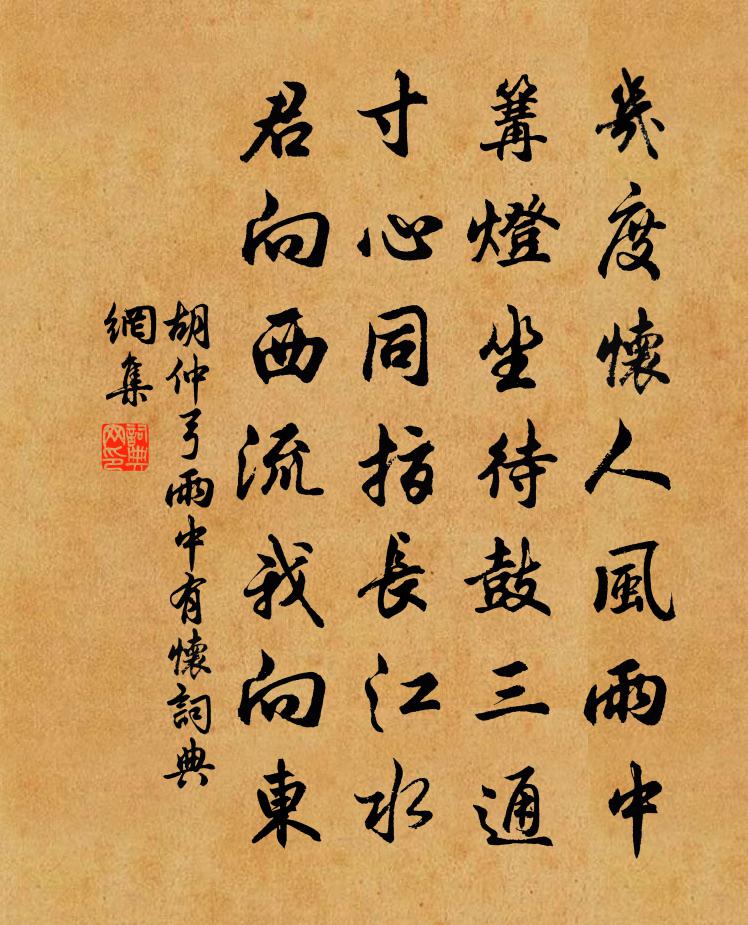 幾度懷人風雨中
篝燈坐待鼓三通
寸心同指長江水
君向西流我向東
胡仲弓雨中有懷詞典
網集
詞典
网印